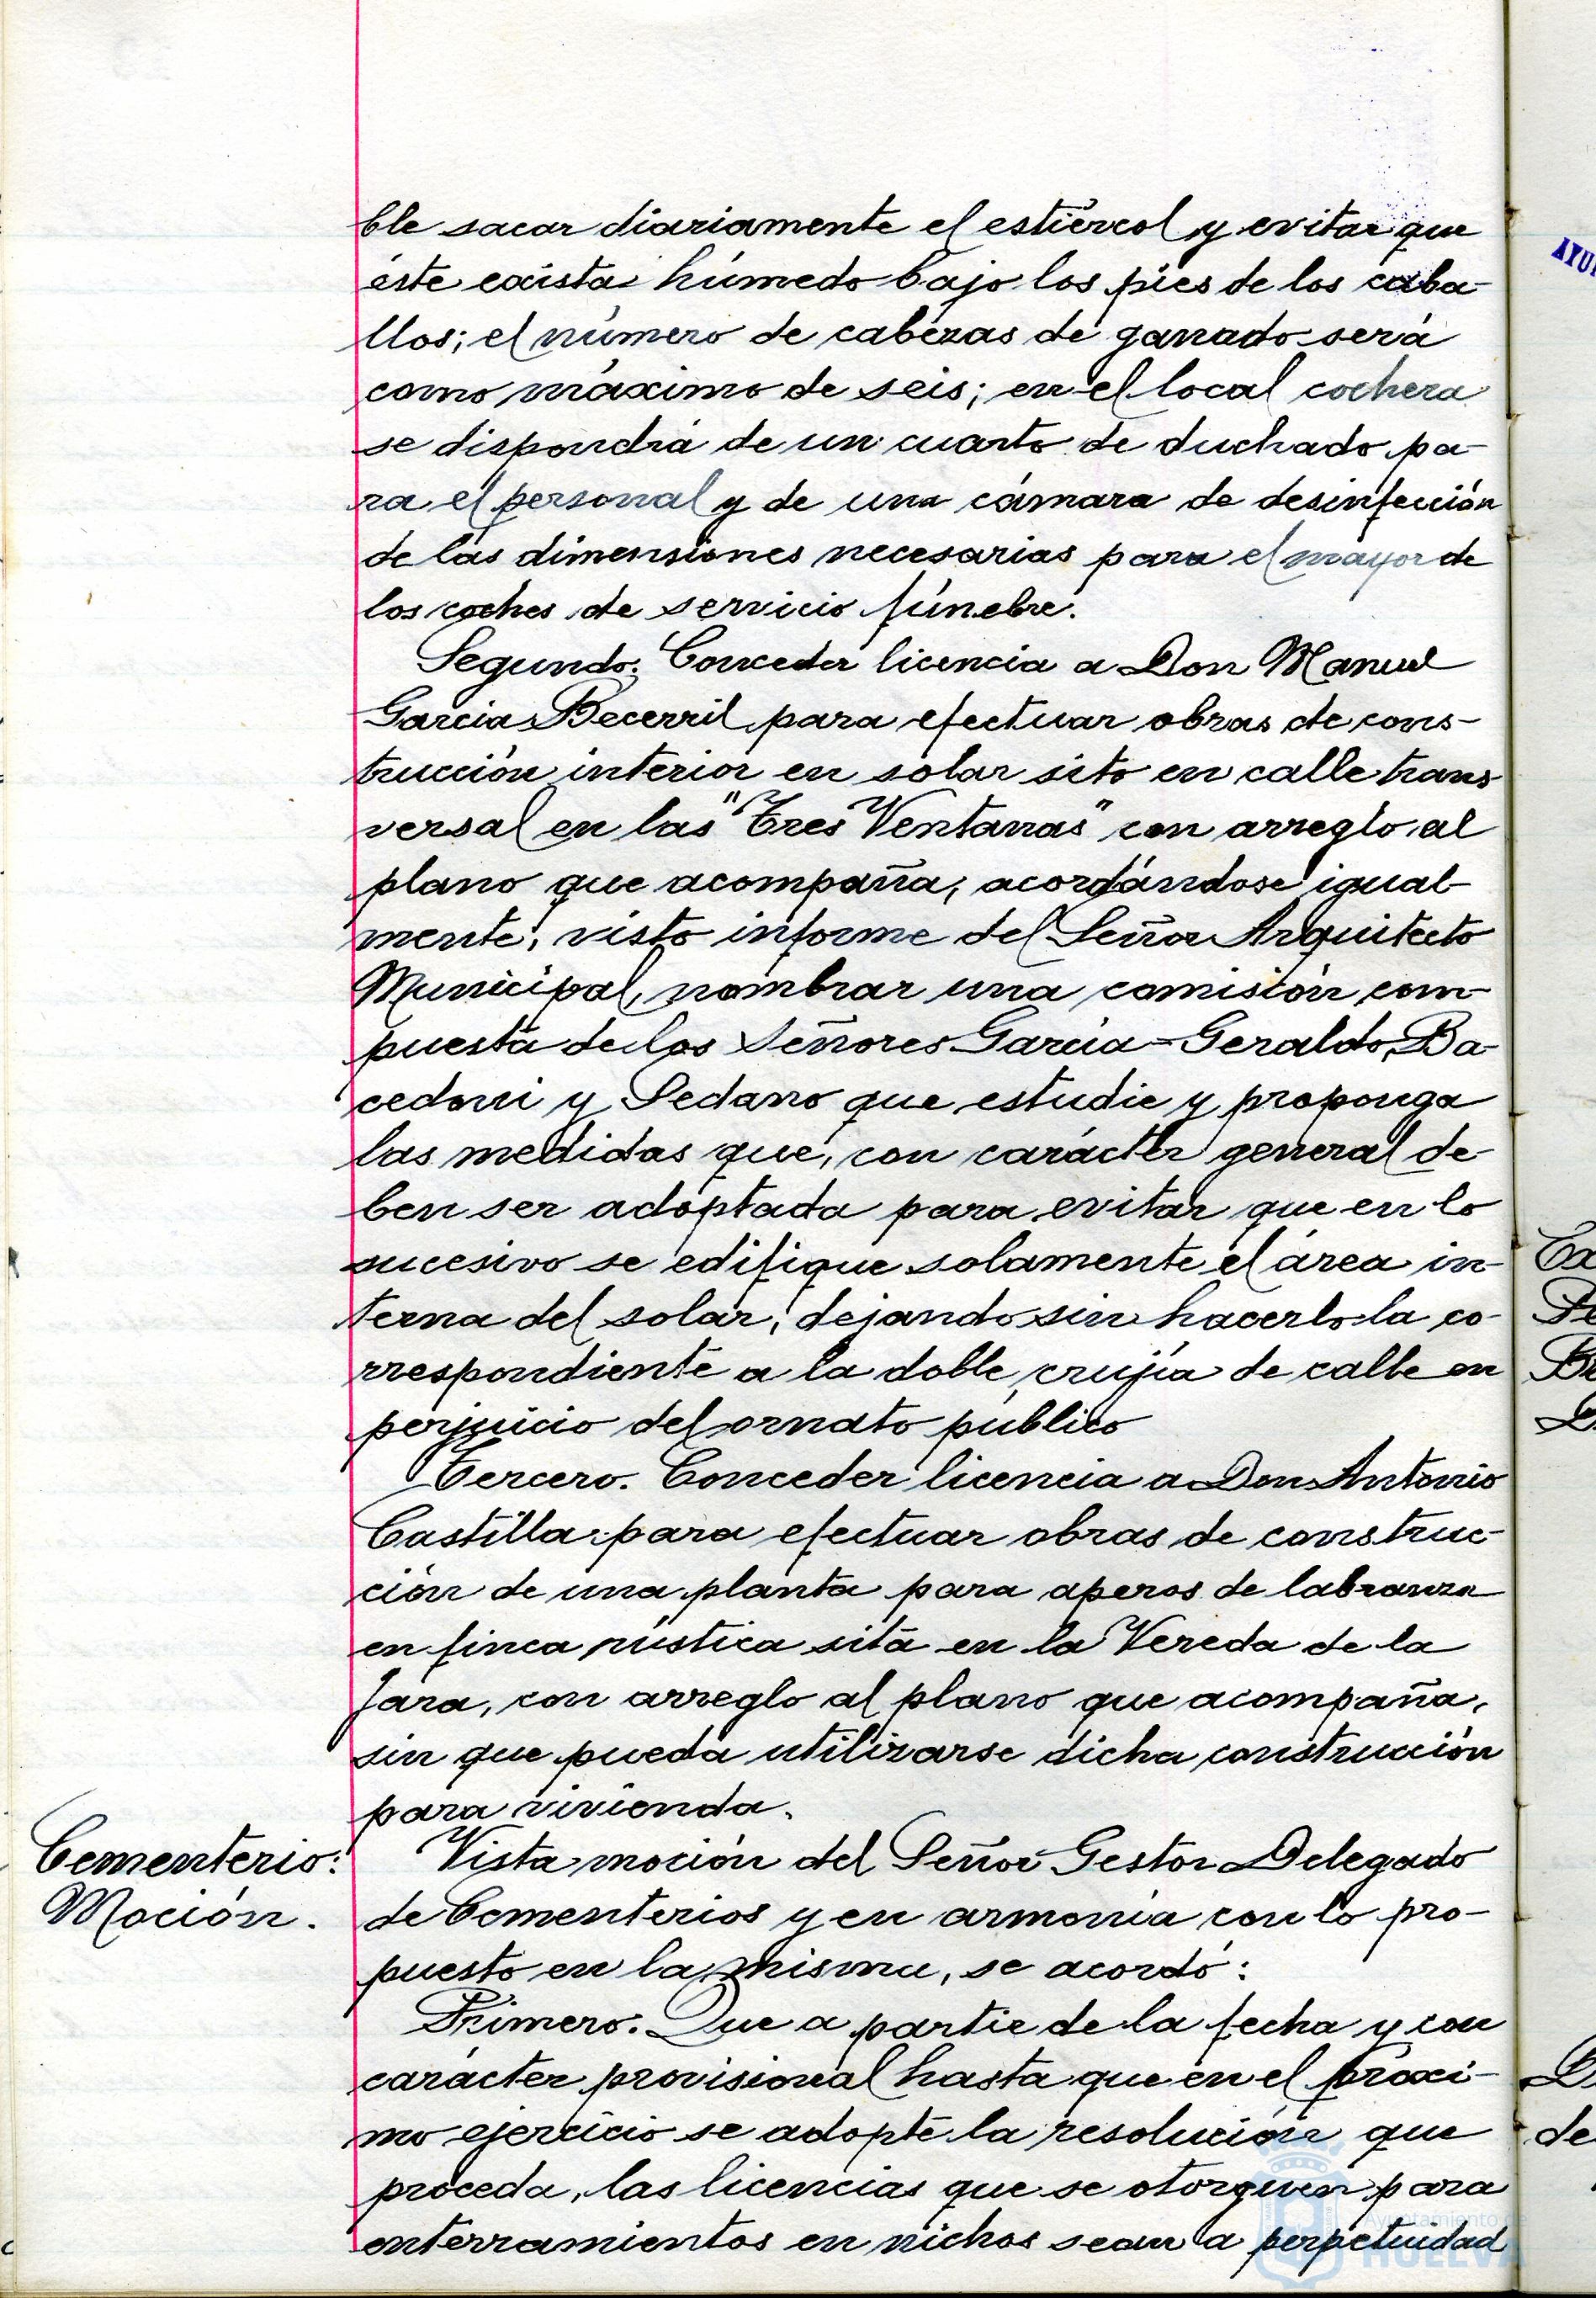 ble sacar diariamente el estiércol y evitar que
éste exista húmedo bajo los pies de los caba-
llos; el número de cabezas de ganado será
como máximo de seis; en el local cochera
se dispondrá de un cuarto de duchado pa-
ra el personal y de una cámara de desinfección
de las dimensiones necesarias para el mayor de
los coches de servicio fúnebre.
Segundo. Conceder licencia a Don Manuel
Garcia Becerril para efectuar obras de cons-
trucción interior en solar sito en calle trans
versal en las "Tres Ventanas" con arreglo al
plano que acompaña, acordándose igual-
mente, visto informe del Señor Arquitecto
Municipal, nombrar una comisión com-
puesta de los Señores Garcia-Geraldo, Ba-
cedoni y Sedano que estudie y proponga
las medidas que, con carácter general de-
ben ser adoptada para evitar que en lo
sucesivo se edifique solamente el área in-
terna del solar, dejando sin hacerlo la co-
rrespondiente a la doble crujía de calle en
perjuicio del ornato público
Tercero. Conceder licencia a Don Antonio
Castilla para efectuar obras de construc-
ción de una planta para aperos de labranza
en finca rústica sita en la Vereda de la
Jara, con arreglo al plano que acompaña,
sin que pueda utilizarse dicha construcción
para vivienda.
Cementerio:
Moción.
Vista moción del Señor Gestor Delegado
de Cementerios y en armonía con lo pro-
puesto en la misma, se acordó:
Primero. Que a partir de la fecha y con
carácter provisional hasta que en el próxi-
mo ejercicio se adopte la resolución que
proceda, las licencias que se otorguen para
enterramientos en nichos sean a perpetuidad
Ayuntamiento de
HUELVA
AYU
de